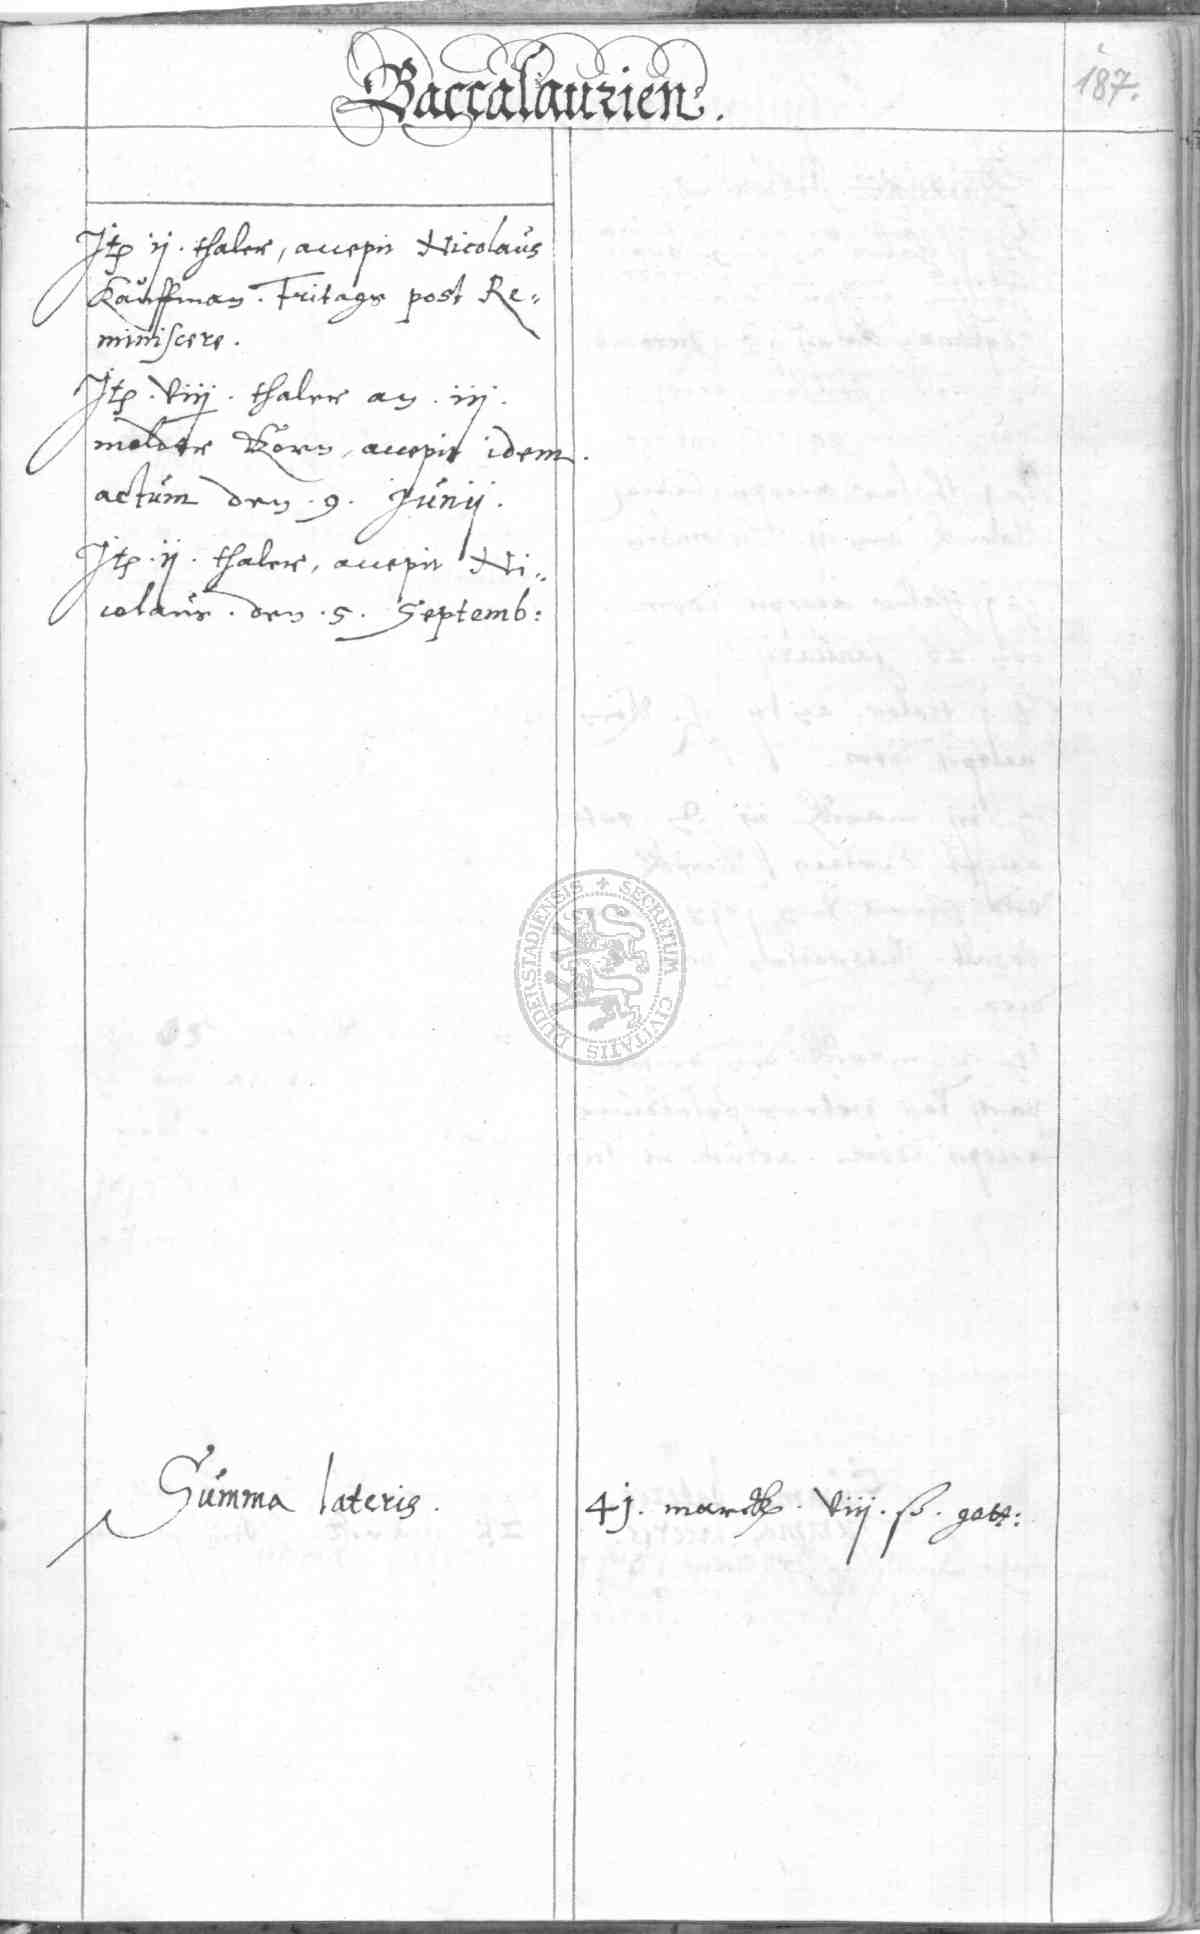 Baccalaurien.
187.
Itp ij. thaler, accepit Nicolaus
Kauffman. Fritags post Re=
miniscere.
Itp. viij. thaler an. iij.
molder Korn, accepit idem.
actum den. 9. Junij.
Itp. ij. thaler, accepit Ni=
colaus. den. 5. Septemb:
SECRETUM CIVITATIS DUDERSTADIENSIS
Summa lateris.
41. marck. viij. ß. gott: